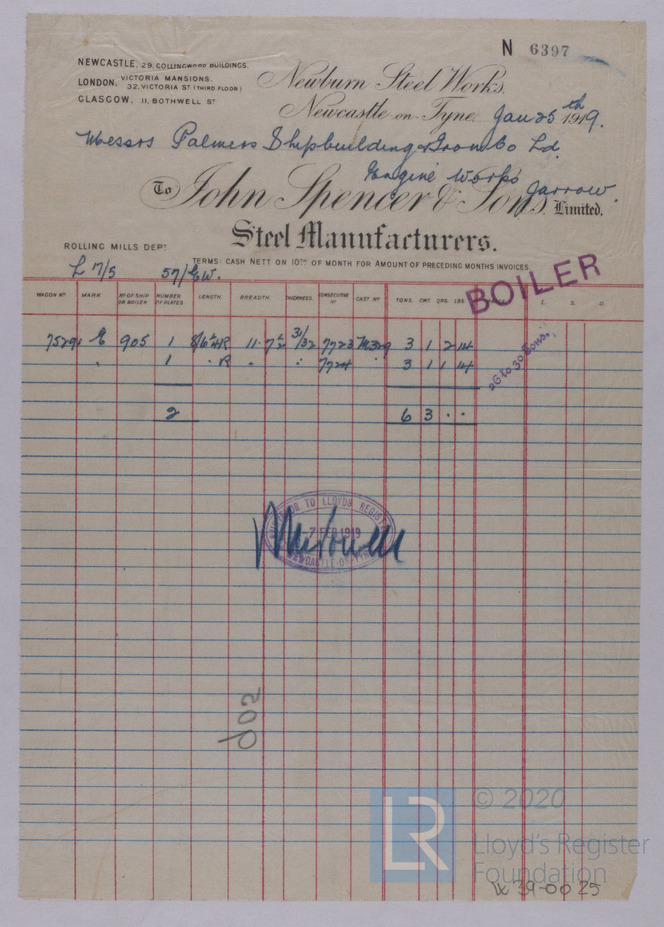 N 6397
NEWCASTLE, 29, COLLINGWOOD BUILDINGS.
LONDON, VICTORIA MANSIONS.
32, VICTORIA ST (THIRD FLOOR)
GLASGOW, 11, BOTHWELL ST
Newburn Steel Works,
Newcastle-on-Tyne, Jan 25th 1919.
Messrs Palmers Shipbuilding & Iron Co Ld.
Engine Works Jarrow.
To John Spencer & Sons, Limited,
Steel Manufacturers.
ROLLING MILLS DEPT
TERMS: CASH NETT ON 10TH OF MONTH FOR AMOUNT OF PRECEDING MONTHS INVOICES
L 7/5 57/EW.
BOILER
WAGON No MARK No OF SHIP OR BOILER NUMBER OF PLATES LENGTH. BREADTH. THICKNESS. CONSECUTIVE No CAST No TONS. CWT. QRS. LBS. £. S. D.
905 1 11·7½ 31/32 7723 3 1 2 14
1 R 7724 3 1 1 14
2 6 3 ··
26 to 30 Tons.
TO LLOYDS REGISTER
7 FEB 1919
NEWCASTLE-ON-TYNE
LR © 2020
Lloyd's Register
Foundation
W39-0025